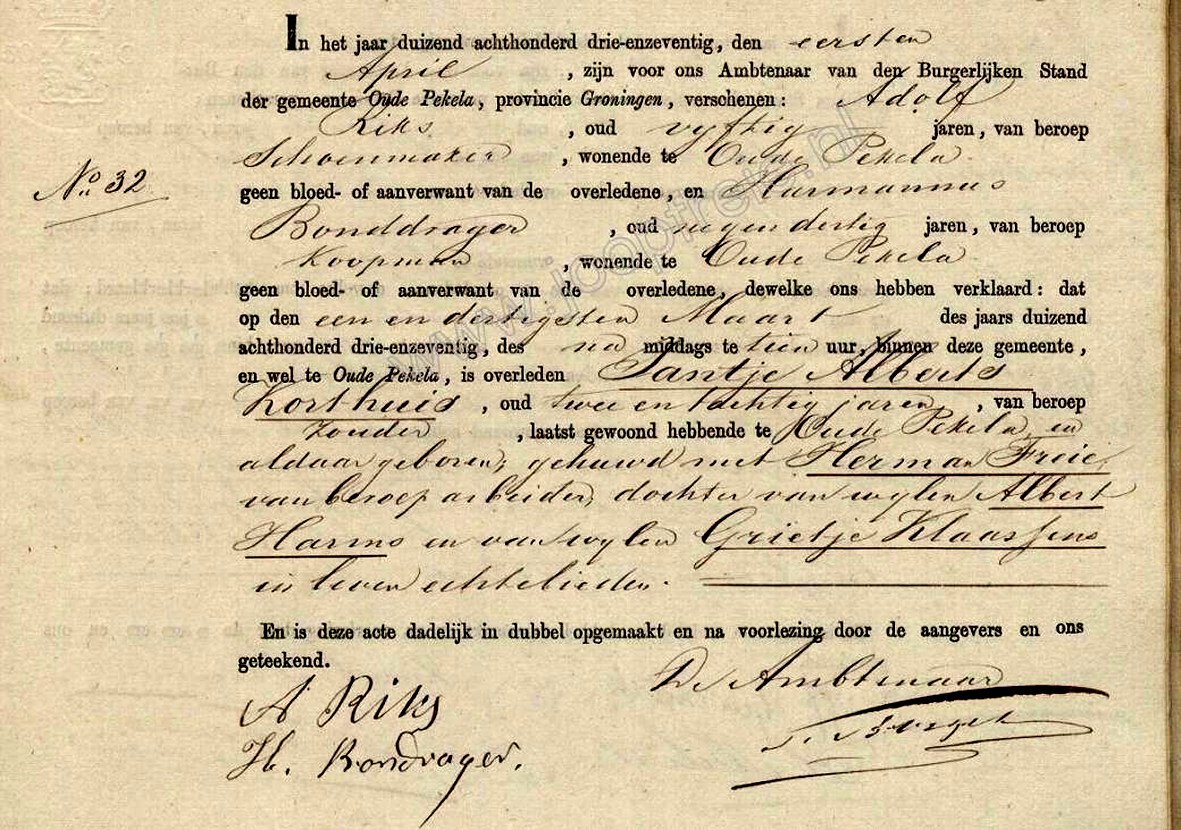 In het jaar duizend achthonderd drie-enzeventig, den eersten
April , zijn voor ons Ambtenaar van den Burgerlijken Stand
der gemeente Oude Pekela, provincie Groningen, verschenen: Adolf
Riks , oud vyftig jaren, van beroep
Schoenmaker , wonende te Oude Pekela
No 32
geen bloed- of aanverwant van de overledene, en Harmannus
Bonddrager , oud negen dertig jaren, van beroep
Koopman , wonende te Oude Pekela
geen bloed- of aanverwant van de overledene, dewelke ons hebben verklaard: dat
op den een en dertigsten Maart des jaars duizend
achthonderd drie-enzeventig, des na middags te tien uur, binnen deze gemeente,
en wel te Oude Pekela, is overleden Jantje Alberts
Korthuis , oud twee en tachtig jaren , van beroep
zonder , laatst gewoond hebbende te Oude Pekela en
aldaar geboren, gehuwd met Herman Freie,
van beroep arbeider, dochter van wylen Albert
Harms en van wylen Grietje Klaassens
in leven echtelieden.
En is deze acte dadelijk in dubbel opgemaakt en na voorlezing door de aangevers en ons
geteekend.
De Ambtenaar
A Riks
H. Bondrager.
www.looptreld.nl